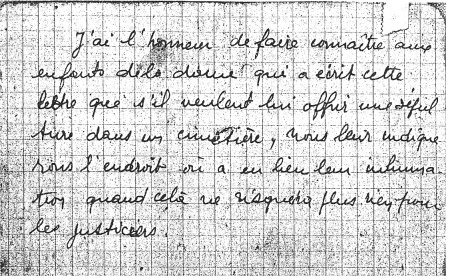 J'ai l'honneur de faire connaître aux
enfants de la dame qui a écrit cette
lettre que s'il veulent lui offrir une sépul
ture dans un cimetière, nous leur indique
rons l'endroit où a eu lieu leur inhuma-
tion quand cela ne risquera plus rien pour
les justiciers.